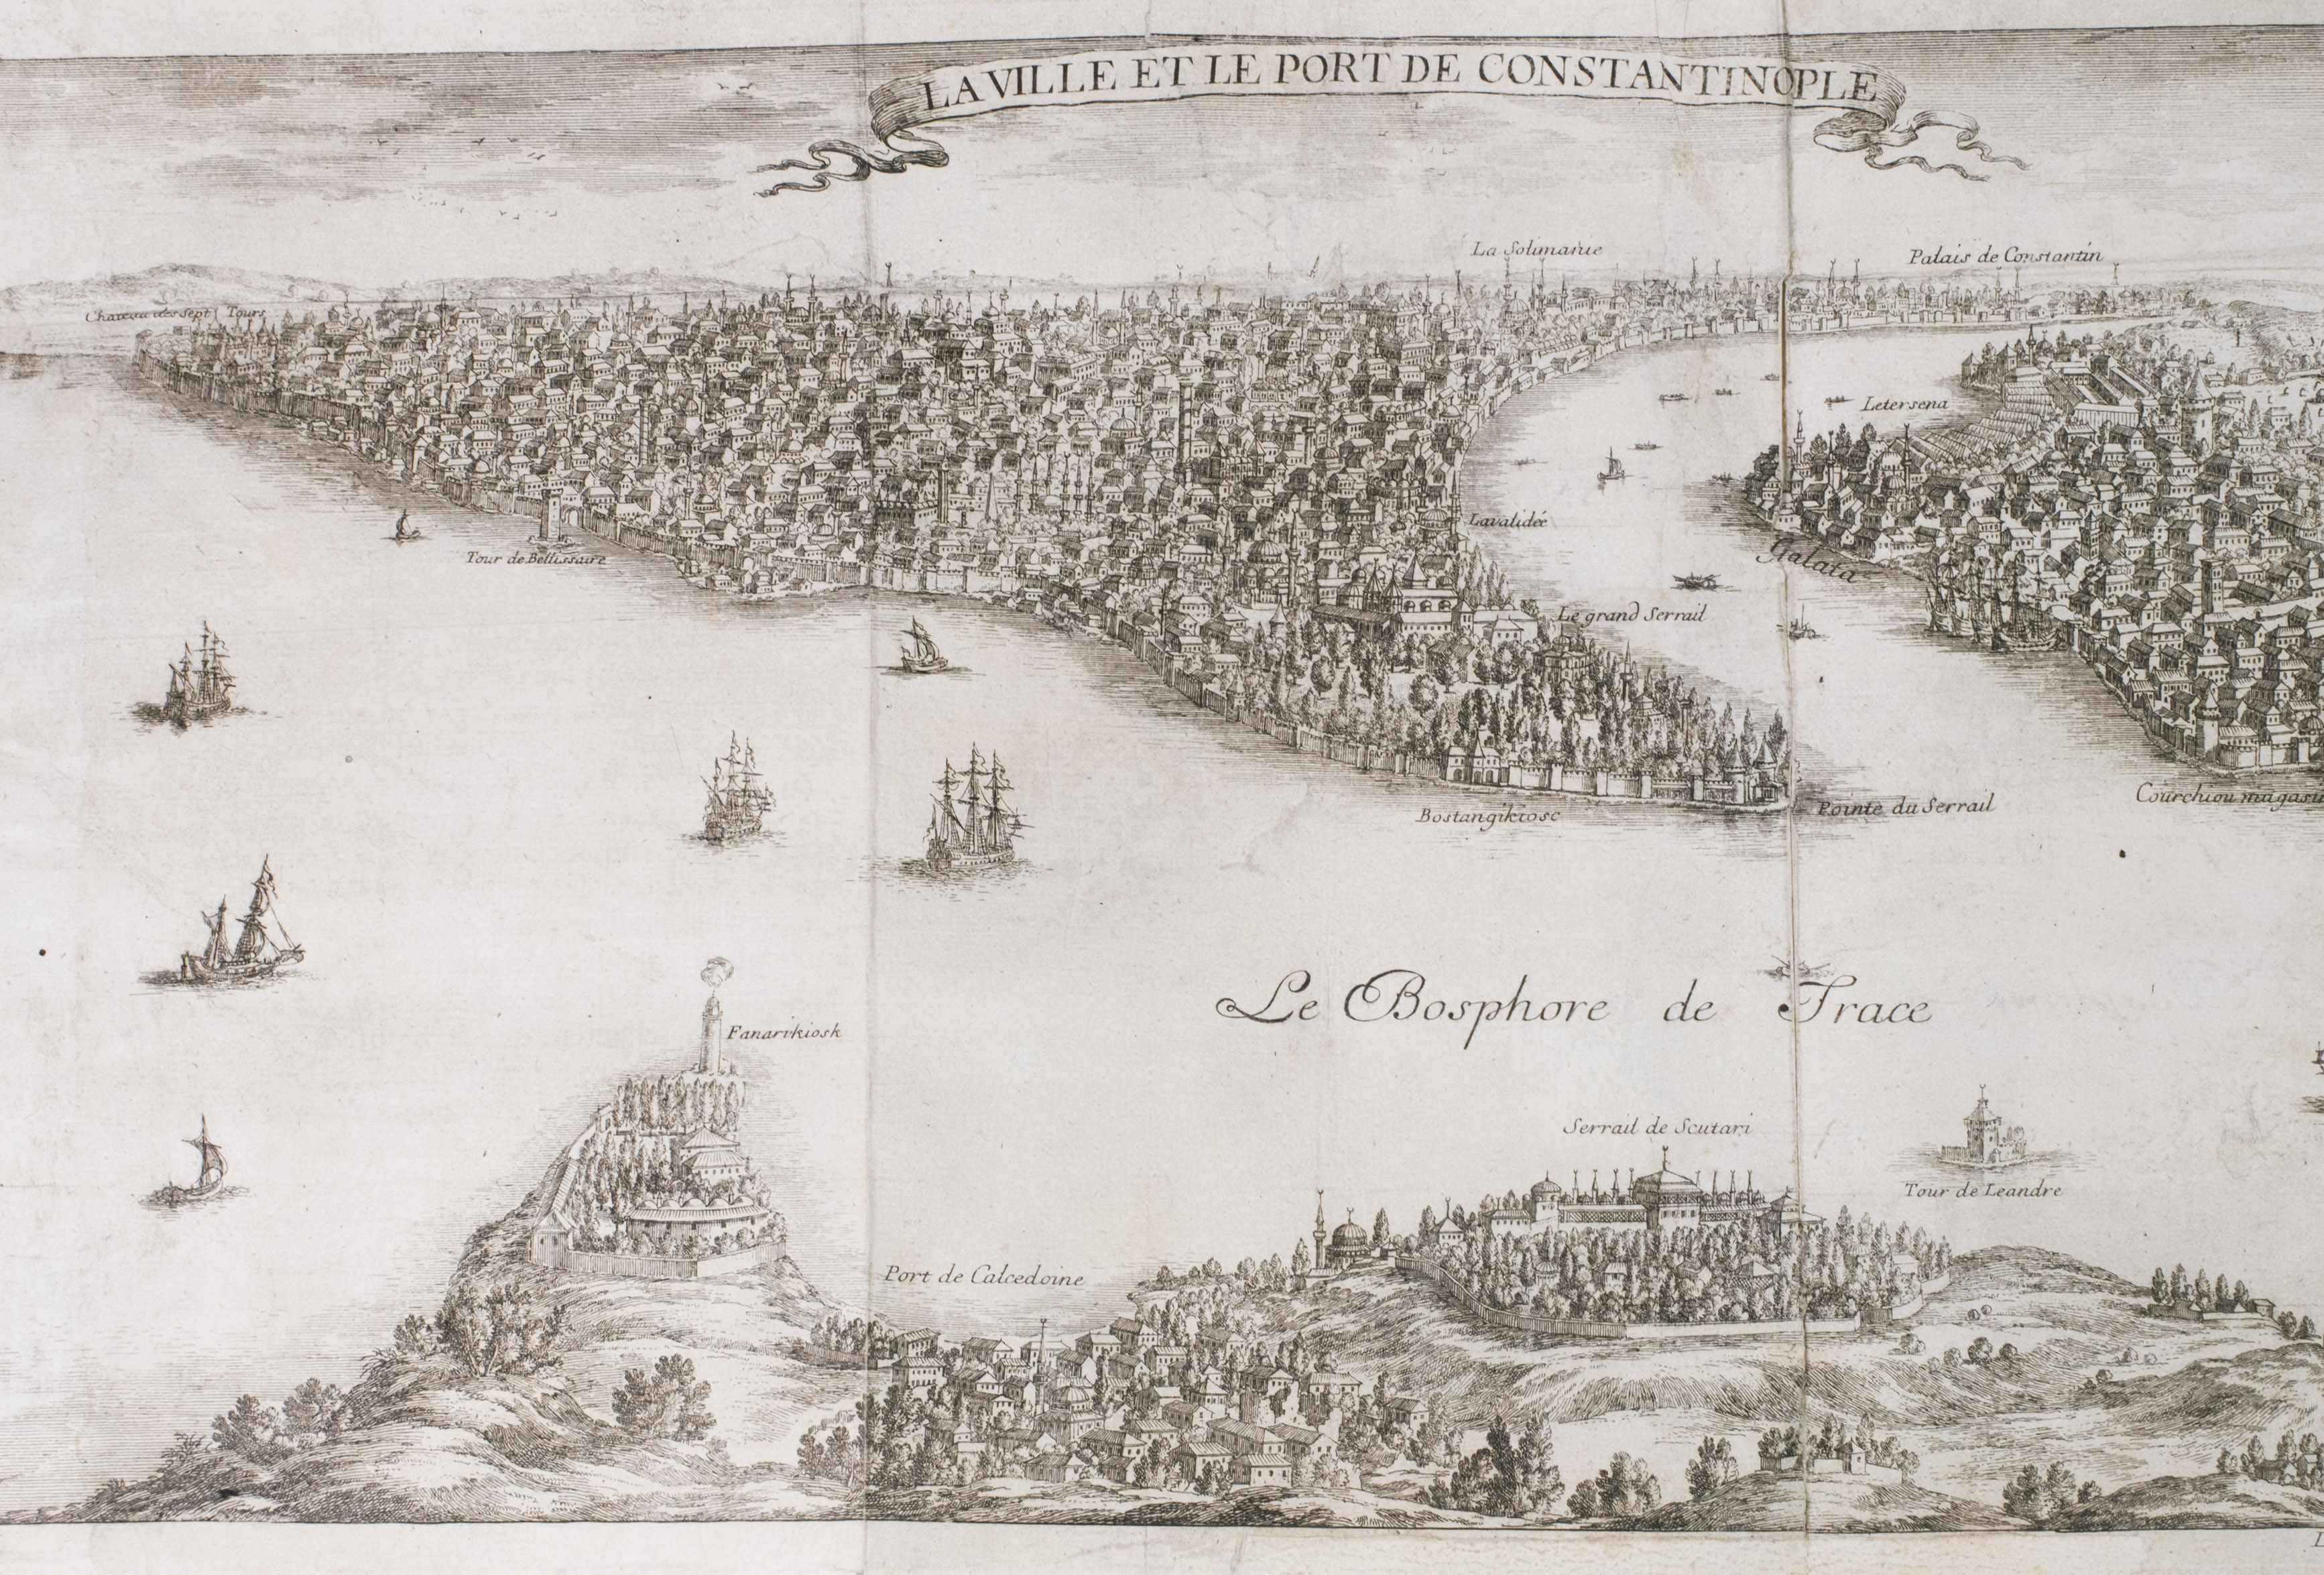 LA VILLE ET LE PORT DE CONSTANTINOPLE
La Solimanie
Palais de Constantin
Chateau des sept Tours
Letersena
Lavalidée
Tour de Bellissaire
Galata
Le grand Serrail
Bostangikiosc
Pointe du Serrail
Courchiou magasin
Le Bosphore de Trace
Fanarikiosk
Serrail de Scutari
Tour de Leandre
Port de Calcedoine